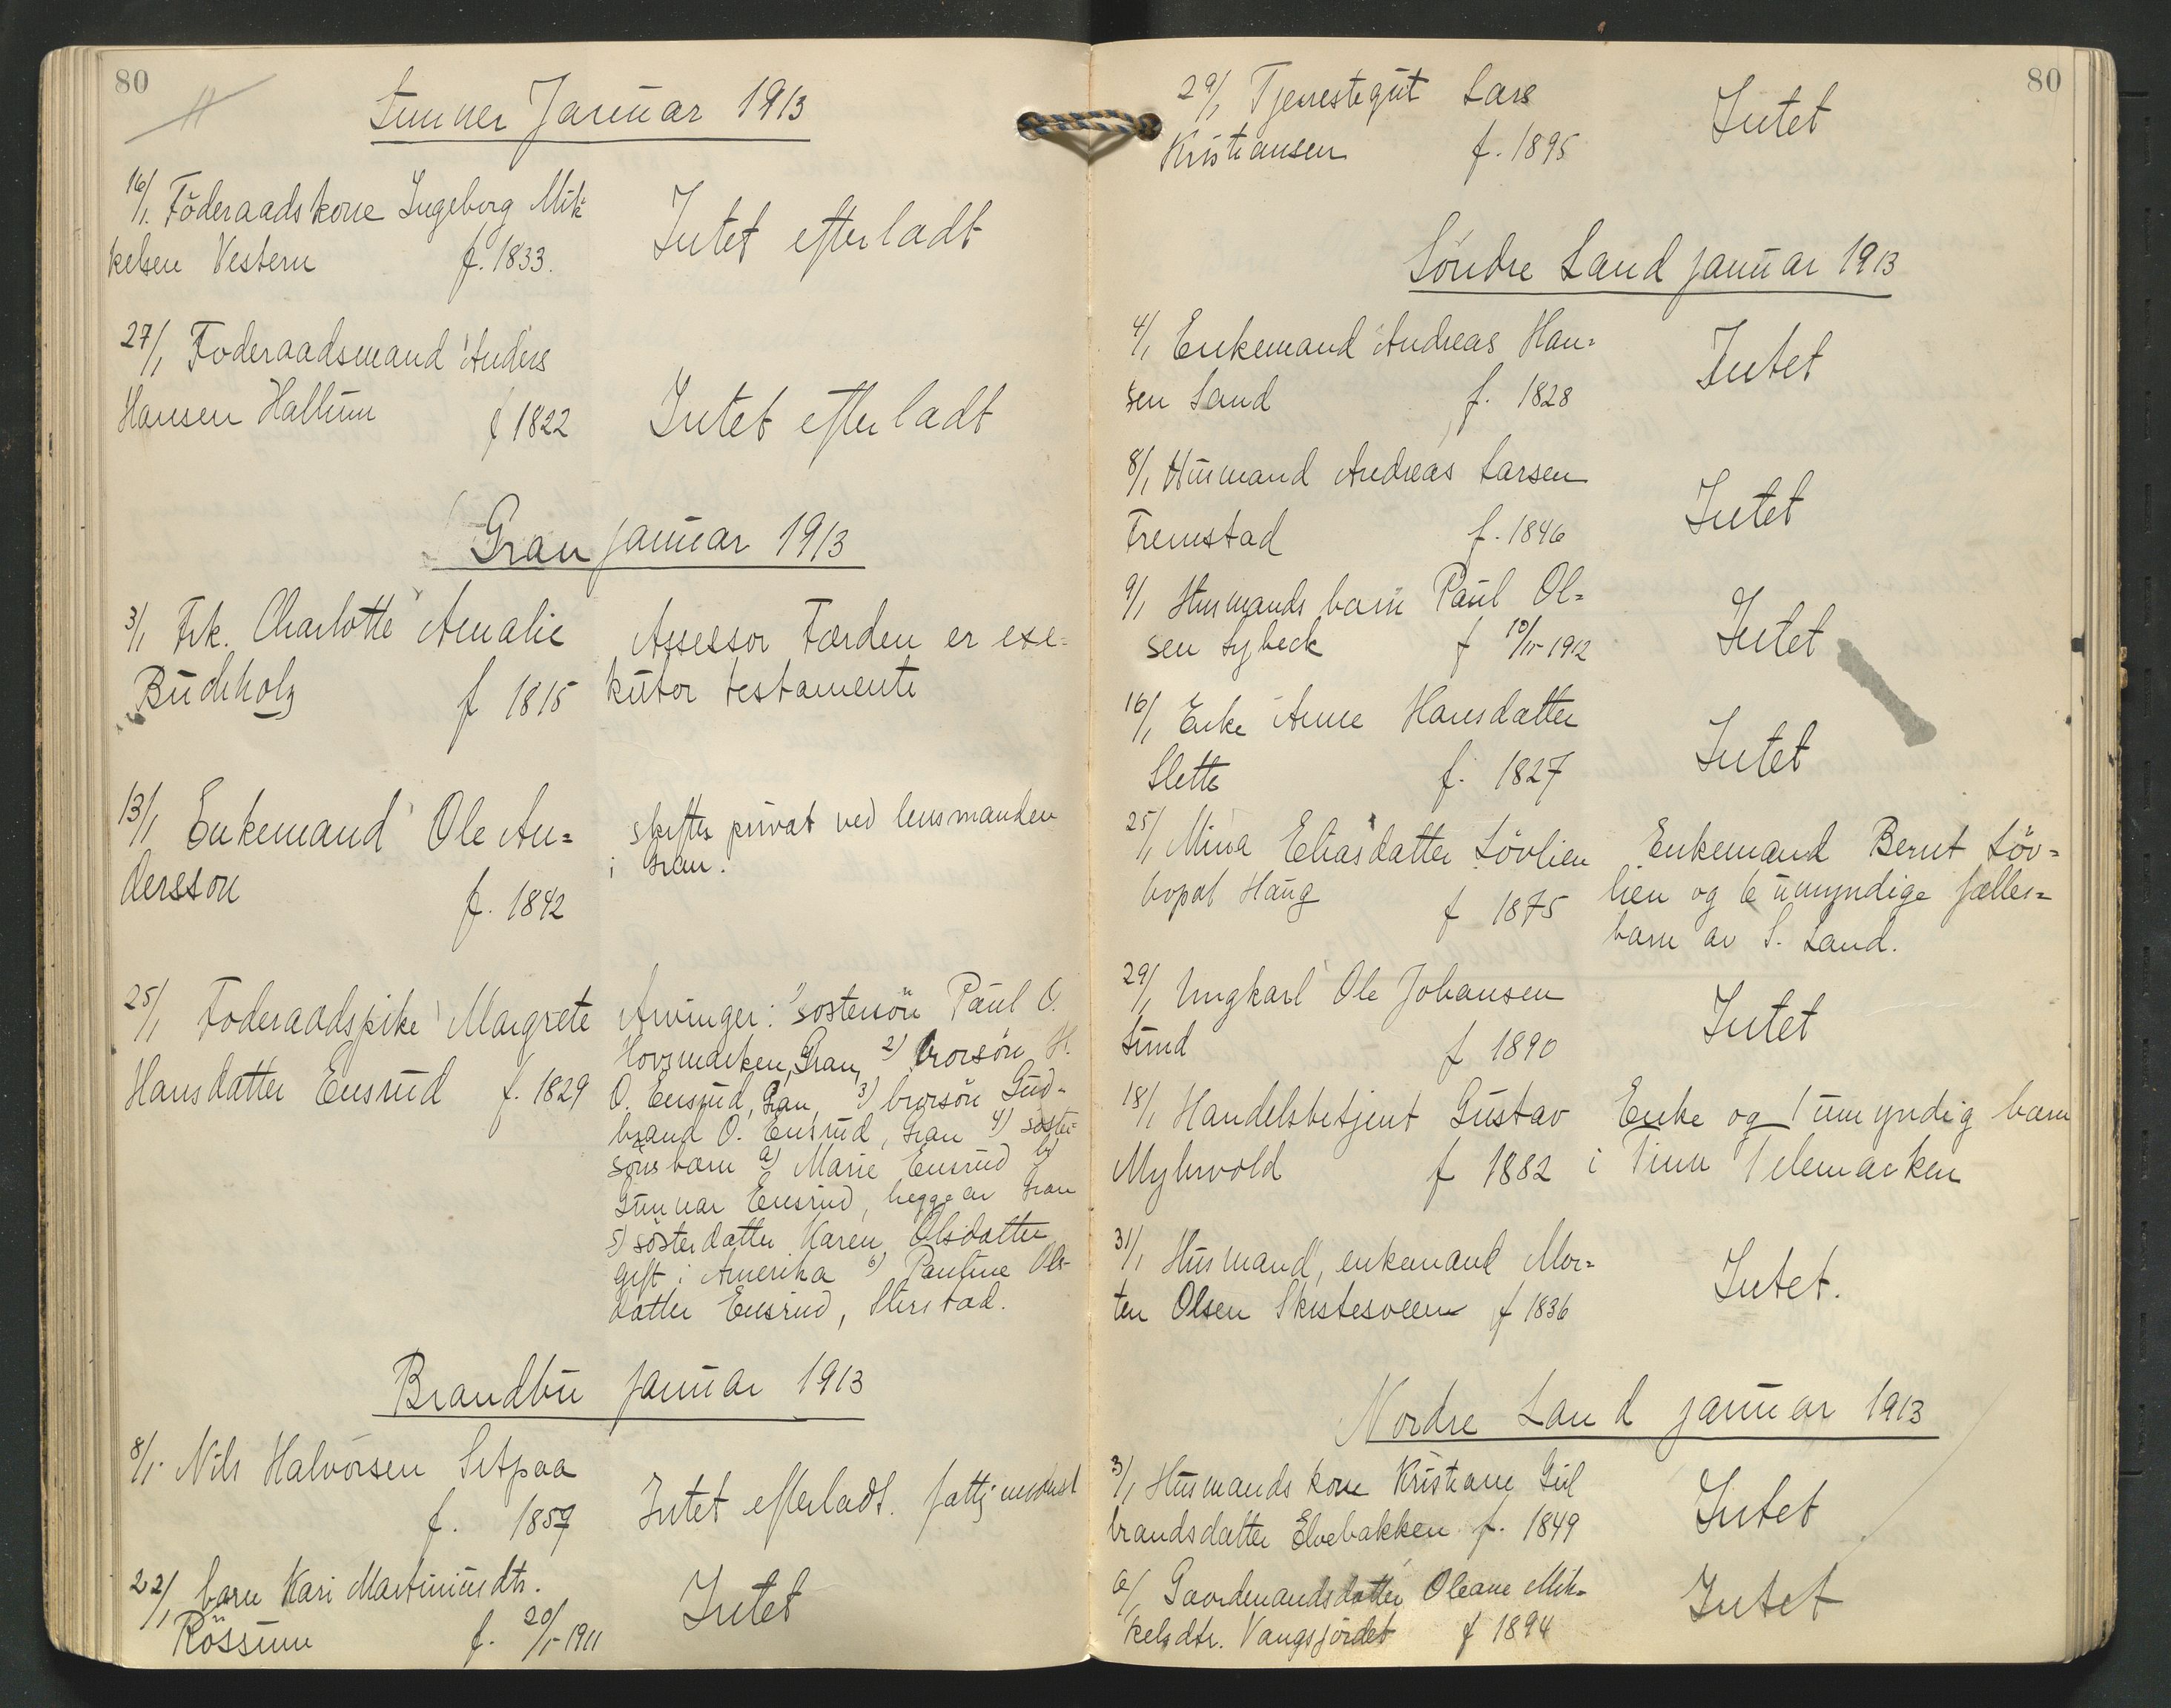 80
Lunner Januar 1913
16/1. Föderaadskone Ingeborg Mik-
kelsen Vestern f. 1833.
Intet efterladt
27/1 Foderaadsmand Anders
Hansen Hallum f 1822
Intet efterladt
Gran januar 1913
3/1 Frk. Charlotte Amalie
Buchholz f 1815
Assessor Færden er exe-
kutor testamente
13/1 Enkemand Ole An=
dersson f. 1842
skiftes privat ved lensmanden
i Gran.
25/1 Foderaadspike Margrete
Hansdatter Ensrud f. 1829
Arvinger: 1) sostersön Paul O.
Hovsmarken, Gran, 2) brorsön H.
O. Ensrud, Gran, 3) brorsön Gud-
brand O. Ensrud, Gran 4) soster-
sönsbarn a) Marie Ensrud b)
Gunnar Ensrud, begge av Gran
5) sösterdatter Karen Olsdatter
gift i Amerika 6) Pauline Ols-
datter Ensrud,
Brandbu januar 1913
8/1. Nils Halvorsen Sitpaa
f. 1857
Intet efterladt.
22/1 barn Kari Martiniusdtr.
Rössum f. 20/1-1911
Intet
80
29/1 Tjenestegut Lars
Kristiansen f. 1895
Intet
Söndre Land januar 1913
4/1 Enkemand Andreas Han=
sen Land f. 1828
Intet
8/1 Husmand Andreas Larsen
Fremstad f. 1846
Intet
9/1 Husmands barn Paul Ol=
sen Lybeck f 10/11-1912
Intet
16/1 Enke Anne Hansdatter
Slette f. 1827
Intet
25/1 Mina Eliasdatter Lövlien
bopæl Haug f 1875
Enkemand Bernt Löv=
lien og 6 umyndige fælles=
barn av S. Land.
29/1 Ungkarl Ole Johansen
Lund f 1890
Intet
18/1 Handelsbetjent Gustav
Myhrvold f 1882
Enke og 1 umyndig barn
i Tinn Telemarken
31/1 Husmand, enkemand Mor=
ten Olsen Skistesveen f 1836
Intet.
Nordre Land januar 1913
3/1 Husmands kone Kristiane Gul
brandsdatter Elvebakken f. 1849
Intet
6/1 Gaardmandsdatter Oleane Mik-
kelsdtr. Vangsjordet f 1894
Intet